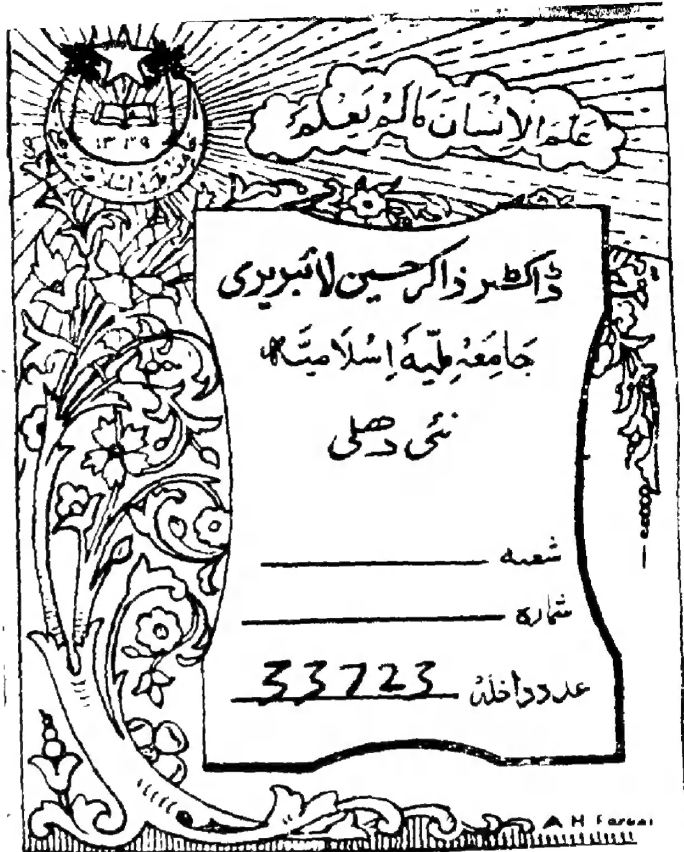 ۱۳۳۹
عَلَّمَ الْاِنْسَانَ مَا لَمْ يَعْلَمْ
ڈاکٹر ذاکر حسین لائبریری
جَامِعَہ مِلّیہ اِسْلَامیَّہ
نئی دھلی
شعبہ
شمارہ
عدد داخلہ 33723
A H Faruqi